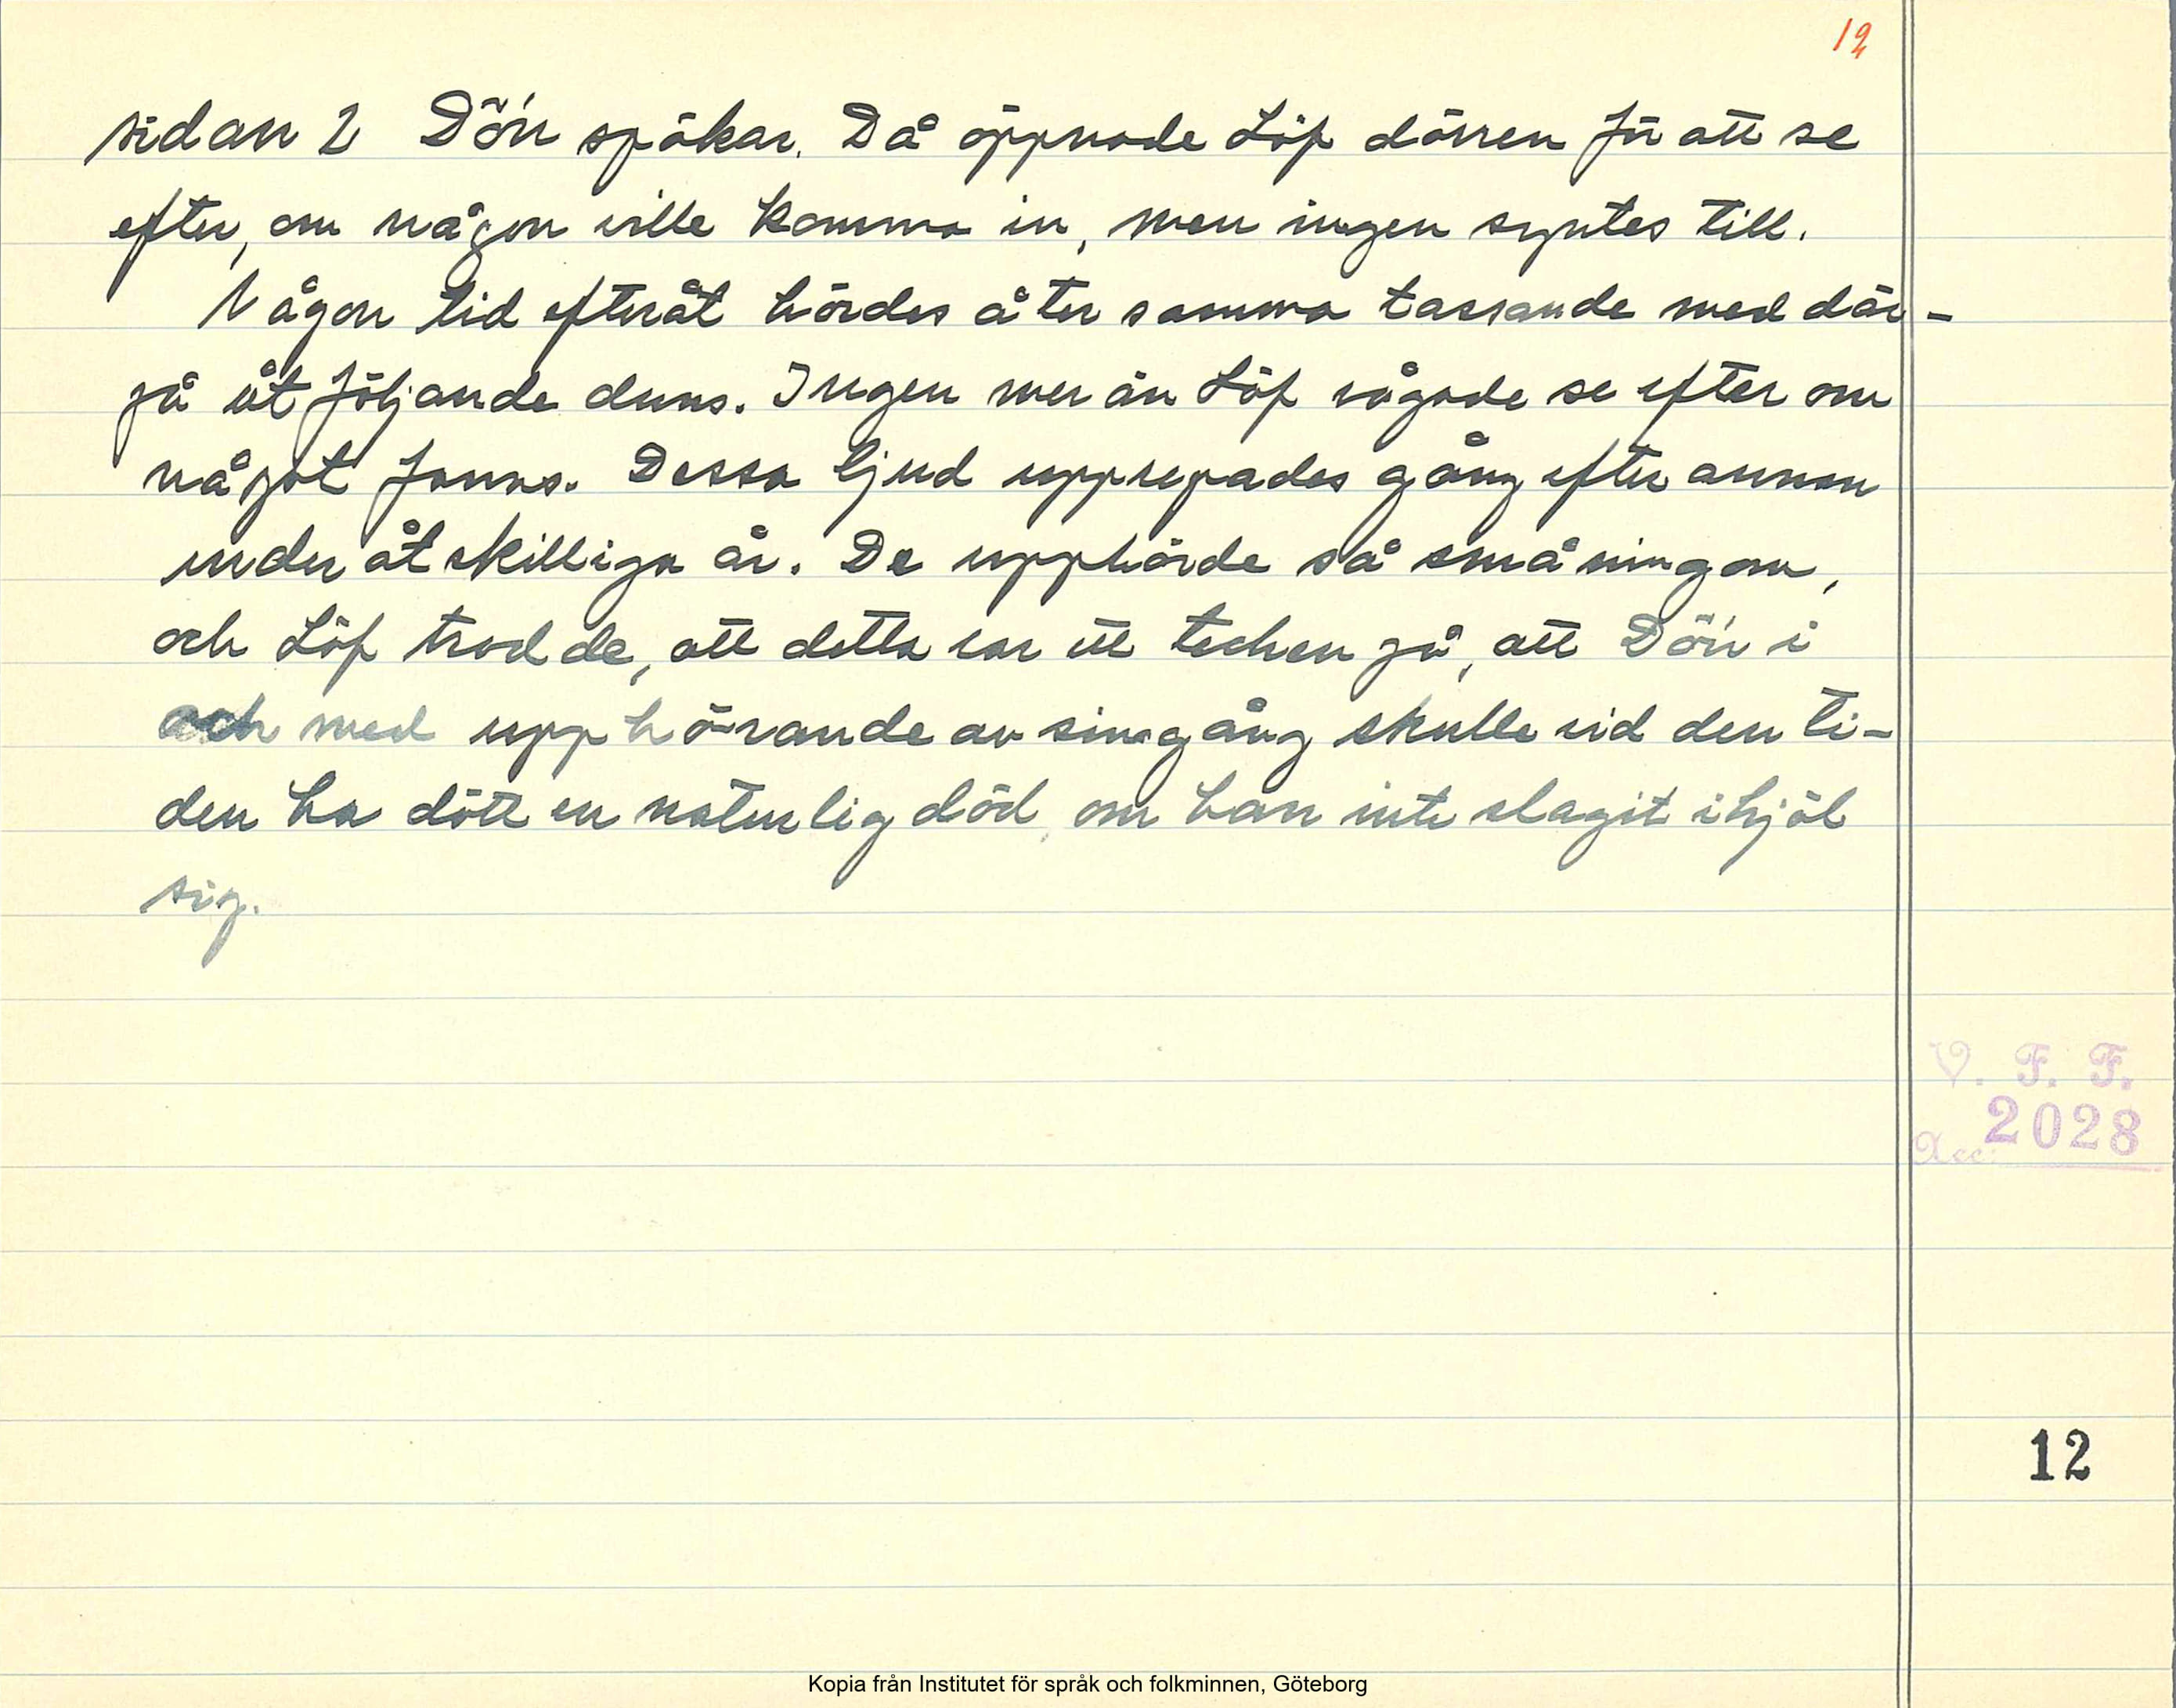 12
sidan 2 Dön spökar. Då öppnade Löf dörren för att se
efter, om någon ville komma in, men ingen syntes till.
Någon tid efteråt hördes åter samma tassande med där-
på åtföljande duns. Ingen mer än Löf vågade se efter om
något fanns. Dessa ljud upprepades gång efter annan
under åtskilliga år. De upphörde så småningom,
och Löf trodde, att detta var ett tecken på, att Dön i
och med upphörande av sin gång skulle vid den ti-
den ha dött en naturlig död, om han inte slagit ihjäl
sig.
V. F. F.
Acc. 2028
12
Kopia från Institutet för språk och folkminnen, Göteborg